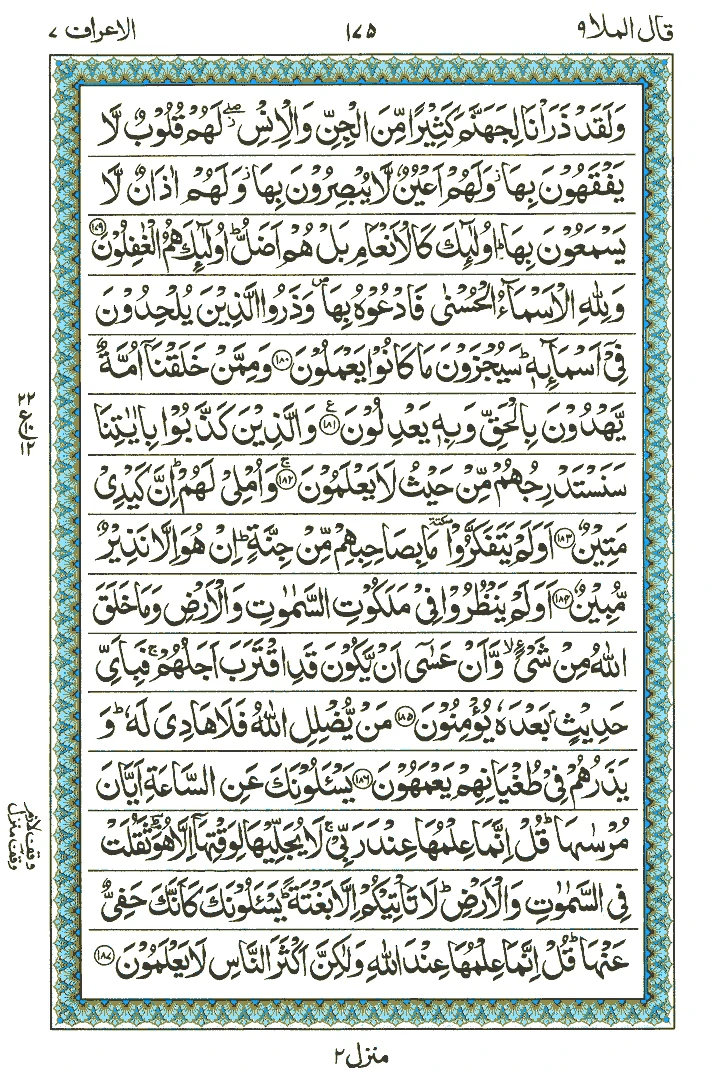 قال الملا ٩
١٧٥
الاعراف ٧
وَلَقَدْ ذَرَاْنَا لِجَهَنَّمَ كَثِيْرًا مِّنَ الْجِنِّ وَالْاِنْسِ ۖ لَهُمْ قُلُوْبٌ لَّا
يَفْقَهُوْنَ بِهَا ۫ وَلَهُمْ اَعْيُنٌ لَّا يُبْصِرُوْنَ بِهَا ۫ وَلَهُمْ اٰذَانٌ لَّا
يَسْمَعُوْنَ بِهَا ؕ اُولٰٓئِكَ كَالْاَنْعَامِ بَلْ هُمْ اَضَلُّ ؕ اُولٰٓئِكَ هُمُ الْغٰفِلُوْنَ ﴿١٧٩﴾
وَلِلّٰهِ الْاَسْمَآءُ الْحُسْنٰى فَادْعُوْهُ بِهَا ۪ وَذَرُوا الَّذِيْنَ يُلْحِدُوْنَ
فِيْٓ اَسْمَآئِهٖ ؕ سَيُجْزَوْنَ مَا كَانُوْا يَعْمَلُوْنَ ﴿١٨٠﴾ وَمِمَّنْ خَلَقْنَاۤ اُمَّةٌ
يَّهْدُوْنَ بِالْحَقِّ وَبِهٖ يَعْدِلُوْنَ ﴿١٨١﴾ ع وَالَّذِيْنَ كَذَّبُوْا بِاٰيٰتِنَا
سَنَسْتَدْرِجُهُمْ مِّنْ حَيْثُ لَا يَعْلَمُوْنَ ﴿١٨٢﴾ ۚ وَاُمْلِيْ لَهُمْ ؕ اِنَّ كَيْدِيْ
مَتِيْنٌ ﴿١٨٣﴾ اَوَلَمْ يَتَفَكَّرُوْا سكتة مَا بِصَاحِبِهِمْ مِّنْ جِنَّةٍ ؕ اِنْ هُوَ اِلَّا نَذِيْرٌ
مُّبِيْنٌ ﴿١٨٤﴾ اَوَلَمْ يَنْظُرُوْا فِيْ مَلَكُوْتِ السَّمٰوٰتِ وَالْاَرْضِ وَمَا خَلَقَ
اللّٰهُ مِنْ شَيْءٍ ۙ وَّاَنْ عَسٰٓى اَنْ يَّكُوْنَ قَدِ اقْتَرَبَ اَجَلُهُمْ ۚ فَبِاَيِّ
حَدِيْثٍۭ بَعْدَهٗ يُؤْمِنُوْنَ ﴿١٨٥﴾ مَنْ يُّضْلِلِ اللّٰهُ فَلَا هَادِيَ لَهٗ ؕ وَ
يَذَرُهُمْ فِيْ طُغْيَانِهِمْ يَعْمَهُوْنَ ﴿١٨٦﴾ يَسْئَلُوْنَكَ عَنِ السَّاعَةِ اَيَّانَ
مُرْسٰىهَا ؕ قُلْ اِنَّمَا عِلْمُهَا عِنْدَ رَبِّيْ ۚ لَا يُجَلِّيْهَا لِوَقْتِهَاۤ اِلَّا هُوَ ؕ ثَقُلَتْ
فِي السَّمٰوٰتِ وَالْاَرْضِ ؕ لَا تَاْتِيْكُمْ اِلَّا بَغْتَةً ؕ يَسْئَلُوْنَكَ كَاَنَّكَ حَفِيٌّ
عَنْهَا ؕ قُلْ اِنَّمَا عِلْمُهَا عِنْدَ اللّٰهِ وَلٰكِنَّ اَكْثَرَ النَّاسِ لَا يَعْلَمُوْنَ ﴿١٨٧﴾
٢٢
ع
١٢
وقف لازم
وقف منزل
منزل ٢